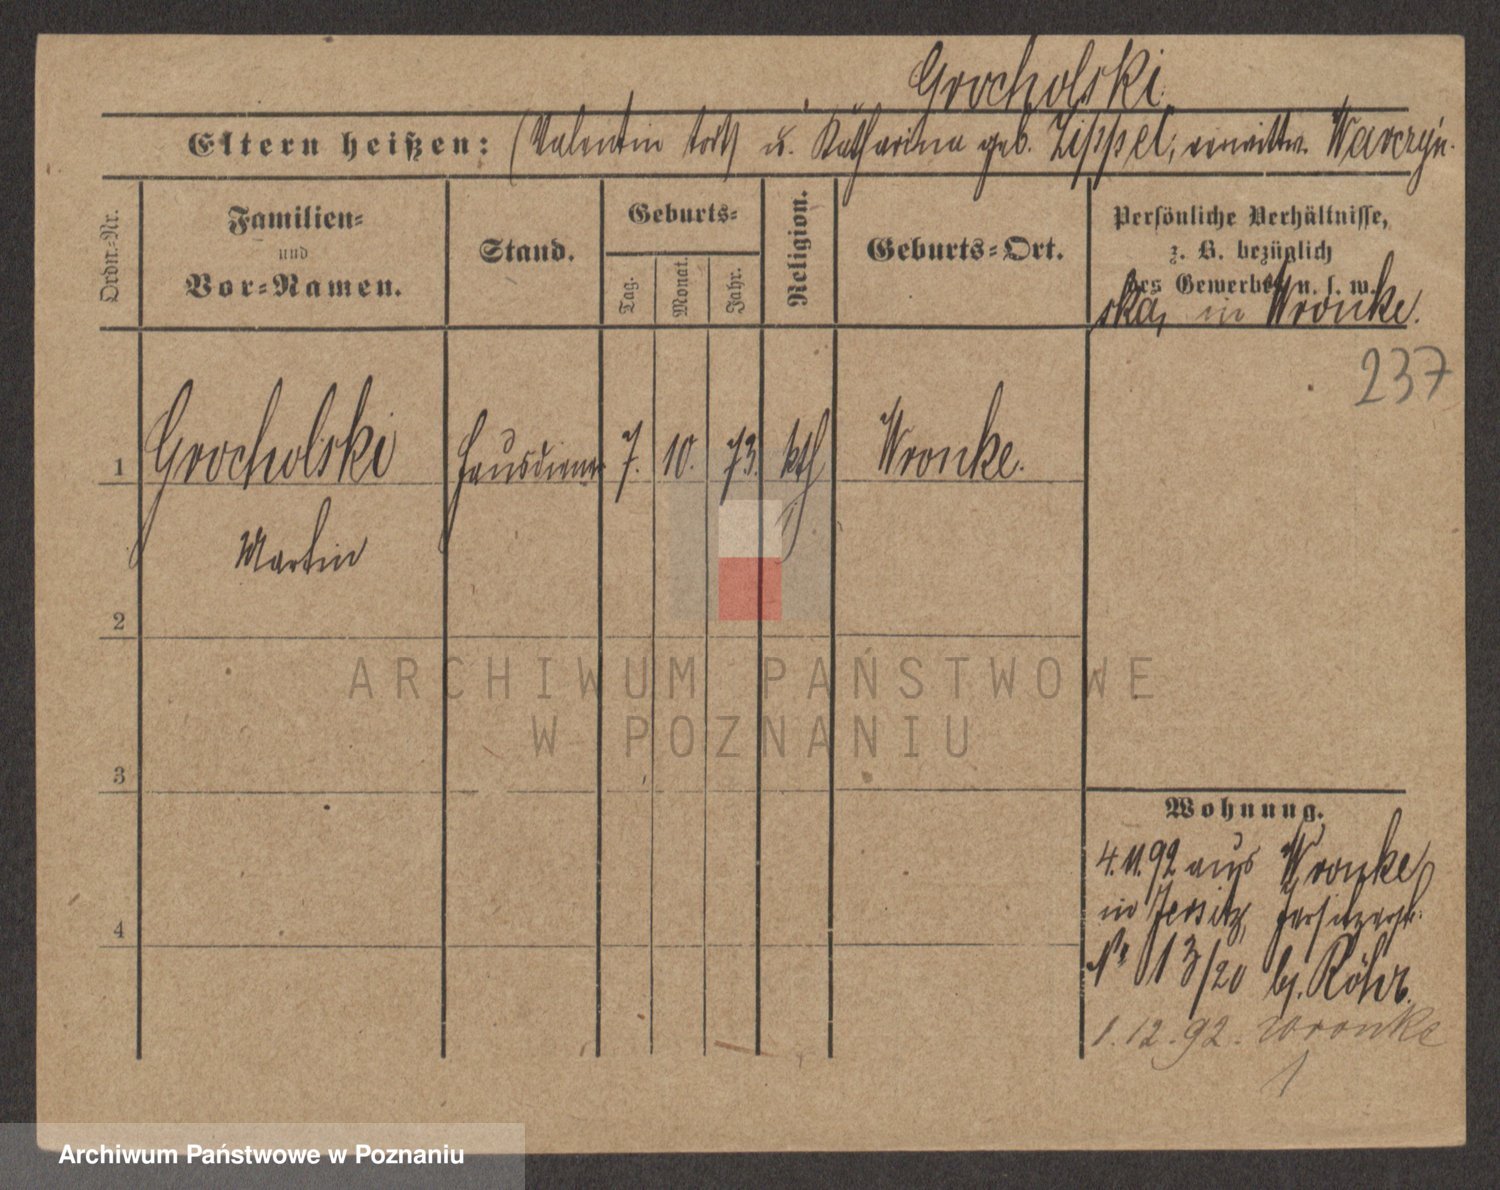 Grocholski
Eltern heißen: (Valentin todt) u. Katharina geb. Zippel, verwittw. Warczyń-
Ordn.-Nr.
Familien-
und
Vor-Namen.
Stand.
Geburts-
Tag.
Monat.
Jahr.
Religion.
Geburts-Ort.
Persönliche Verhältnisse,
z. B. bezüglich
des Gewerbes u. s. w.
ska, in Wronke.
237
1 Grocholski Hausdiener 7. 10. 73. kth Wronke.
Martin
2
ARCHIWUM PAŃSTWOWE
W POZNANIU
3
Wohnung.
4.11.92 aus Wronke
in Jersitz, Jersitzerstr.
4
No 13/20 bj. Röhr.
1.12.92. Wronke
Archiwum Państwowe w Poznaniu